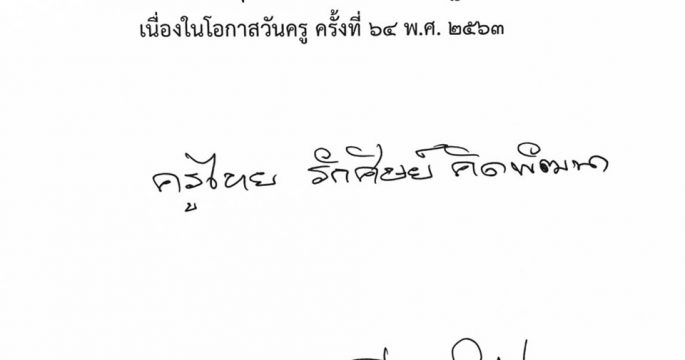 เนื่องในโอกาสวันครู ครั้งที่ ๖๔ พ.ศ. ๒๕๖๓
ครูไทย รักศิษย์ คิดพัฒนา